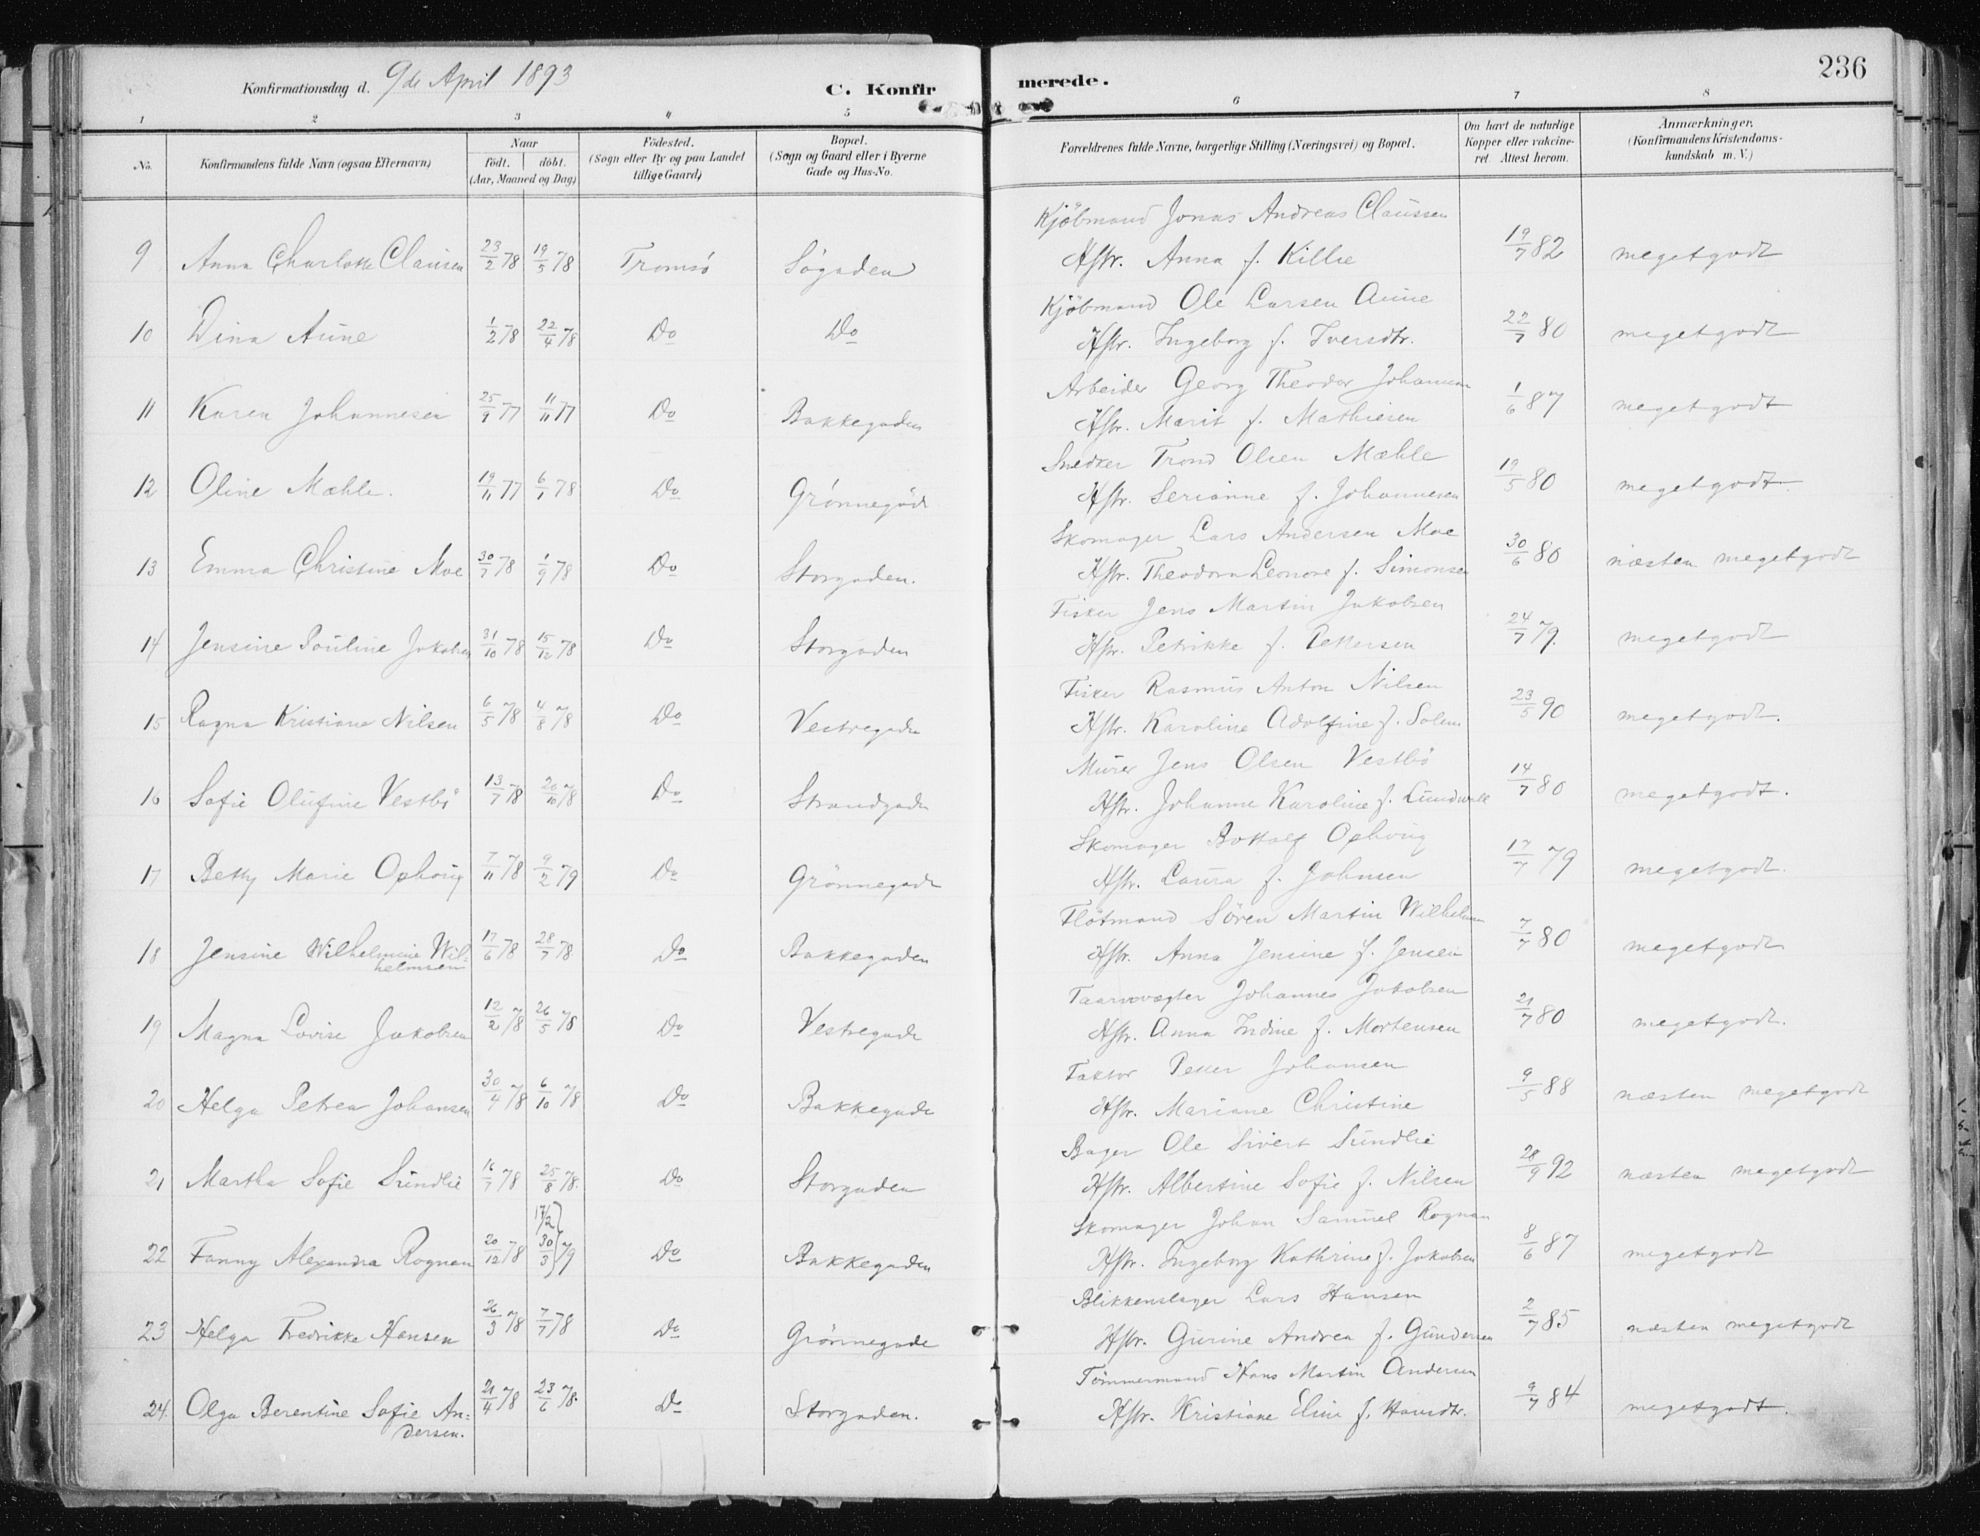 Konfirmationsdag d. 9de April 1893
C. Konfirmerede.
236
1 2 3 4 5 6 7 8
No. Konfirmandens fulde Navn (ogsaa Efternavn) Naar født. døbt. (Aar, Maaned og Dag) Fødested. (Sogn eller By og paa Landet tillige Gaard) Bopæl. (Sogn og Gaard eller i Byerne Gade og Hus-No. Forældrenes fulde Navne, borgerlige Stilling (Næringsvei) og Bopæl. Om havt de naturlige Kopper eller vakcineret. Attest herom. Anmærkninger. (Konfirmandens Kristendomskundskab m. V.)
Kjøbmand Jonas Andreas Claussen
9 Anna Charlotte Clausen 23/2 78 19/5 78 Tromsø Søgaden Hstr. Anna f. Killie 19/7 82 megetgodt
Kjøbmand Ole Larsen Aune
10 Dina Aune 1/2 78 22/4 78 Do Do Hstr. Ingeborg f. Iversdtr. 22/7 80 megetgodt
Arbeider Georg Theodor Johannesen
11 Karen Johannesen 25/9 77 11/11 77 Do Bakkegaden Hstr. Marit f. Mathiesen 1/6 87 megetgodt
Snedker Trond Olsen Mæhle
12 Oline Mæhle. 19/11 77 6/1 78 Do Grønnegad Hstr. Serianne f. Johannesen 19/5 80 megetgodt
Skomager Lars Andersen Moe
13 Emma Christine Moe 30/7 78 1/9 78 Do Storgaden. Hstr. Theodora Leonore f. Simonsen 30/6 80 næsten megetgodt
Fisker Jens Martin Jakobsen
14 Jensine Pouline Jakobsen 31/10 78 15/12 78 Do Storgaden Hstr. Petrikke f. Pettersen 24/7 79. megetgodt
Fisker Rasmus Anton Nilsen
15 Ragna Kristiane Nilsen 6/5 78 4/8 78 Do Vestregaden Hstr. Karoline Adolfine f. Solem 23/5 90 megetgodt.
Murer Jens Olsen Vestbø
16 Sofie Olufine Vestbø 13/7 78 20/10 78 Do Strandgaden Hstr. Johanne Karoline f. Lundwall 14/7 80 megetgodt.
Skomager Bottolf Ophoug
17 Betty Marie Ophoug 7/11 78 9/2 79 Do Grønnegade Hstr. Laura f. Johnsen 17/7 79 megetgodt.
Fløtmand Søren Martin Wilhelmsen
18 Jensine Wilhelmine Wil= 17/6 78 28/7 78 Do Bakkegaden Hstr. Anna Jensine f. Jensen 7/7 80 megetgodt
helmsen
Taarnvægter Johannes Jakobsen
19 Magna Lovise Jakobsen 12/2 78 26/5 78 Do Vestregade Hstr. Anna Indine f. Mortensen 21/7 80 megetgodt.
Faktor Petter Johansen
20 Helga Petrea Johansen 30/4 78 6/10 78 Do Bakkegade Hstr. Mariane Christine 9/5 88 næsten megetgodt
Bager Ole Sivert Sundlie
21 Martha Sofie Sundlie 16/7 78 25/8 78. Do Storgaden Hstr. Albertine Sofie f. Nilsen 28/9 92 næsten megetgodt
Skomager Johan Samuel Rognan
22 Fanny Alexandra Rognan 20/12 78 17/2 30/3 79 Do Bakkegaden Hstr. Ingeborg Kathrine f. Jakobsen 8/6 87 megetgodt
Blikkenslager Lars Hansen
23 Helga Fredrikke Hansen 26/3 78 7/7 78 Do Grønnegade Hstr. Gurine Andrea f. Gundersen 2/7 85 næsten megetgodt
Tømmermand Hans Martin Andersen
24. Olga Berentine Sofie An= 21/4 78 23/6 78. Do Storgaden. Hstr. Kristiane Elin f. Hansdtr. 9/7 84 megetgodt.
dersen.